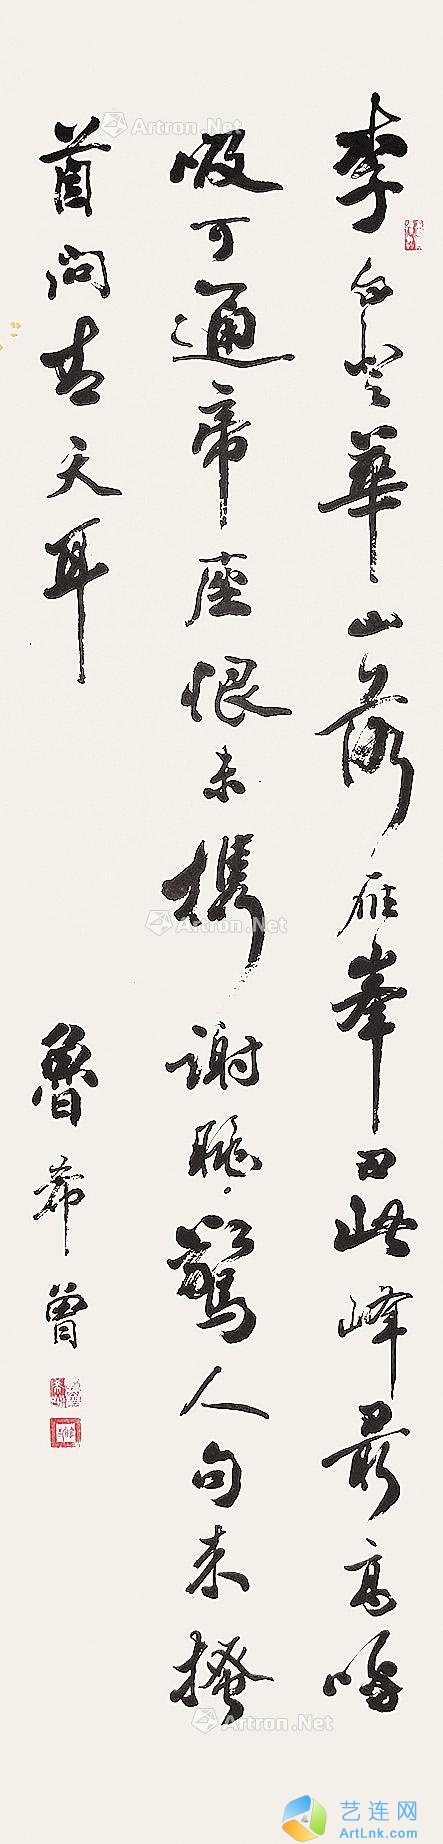 李白登華山落雁峯曰此峰最高呼
吸可通帝座恨未携謝朓驚人句来搔
首問青天耳
魯希曾
Artron.Net
Artron.Net
Artron.Net
Artron.Net
艺连网
ArtLnk.com